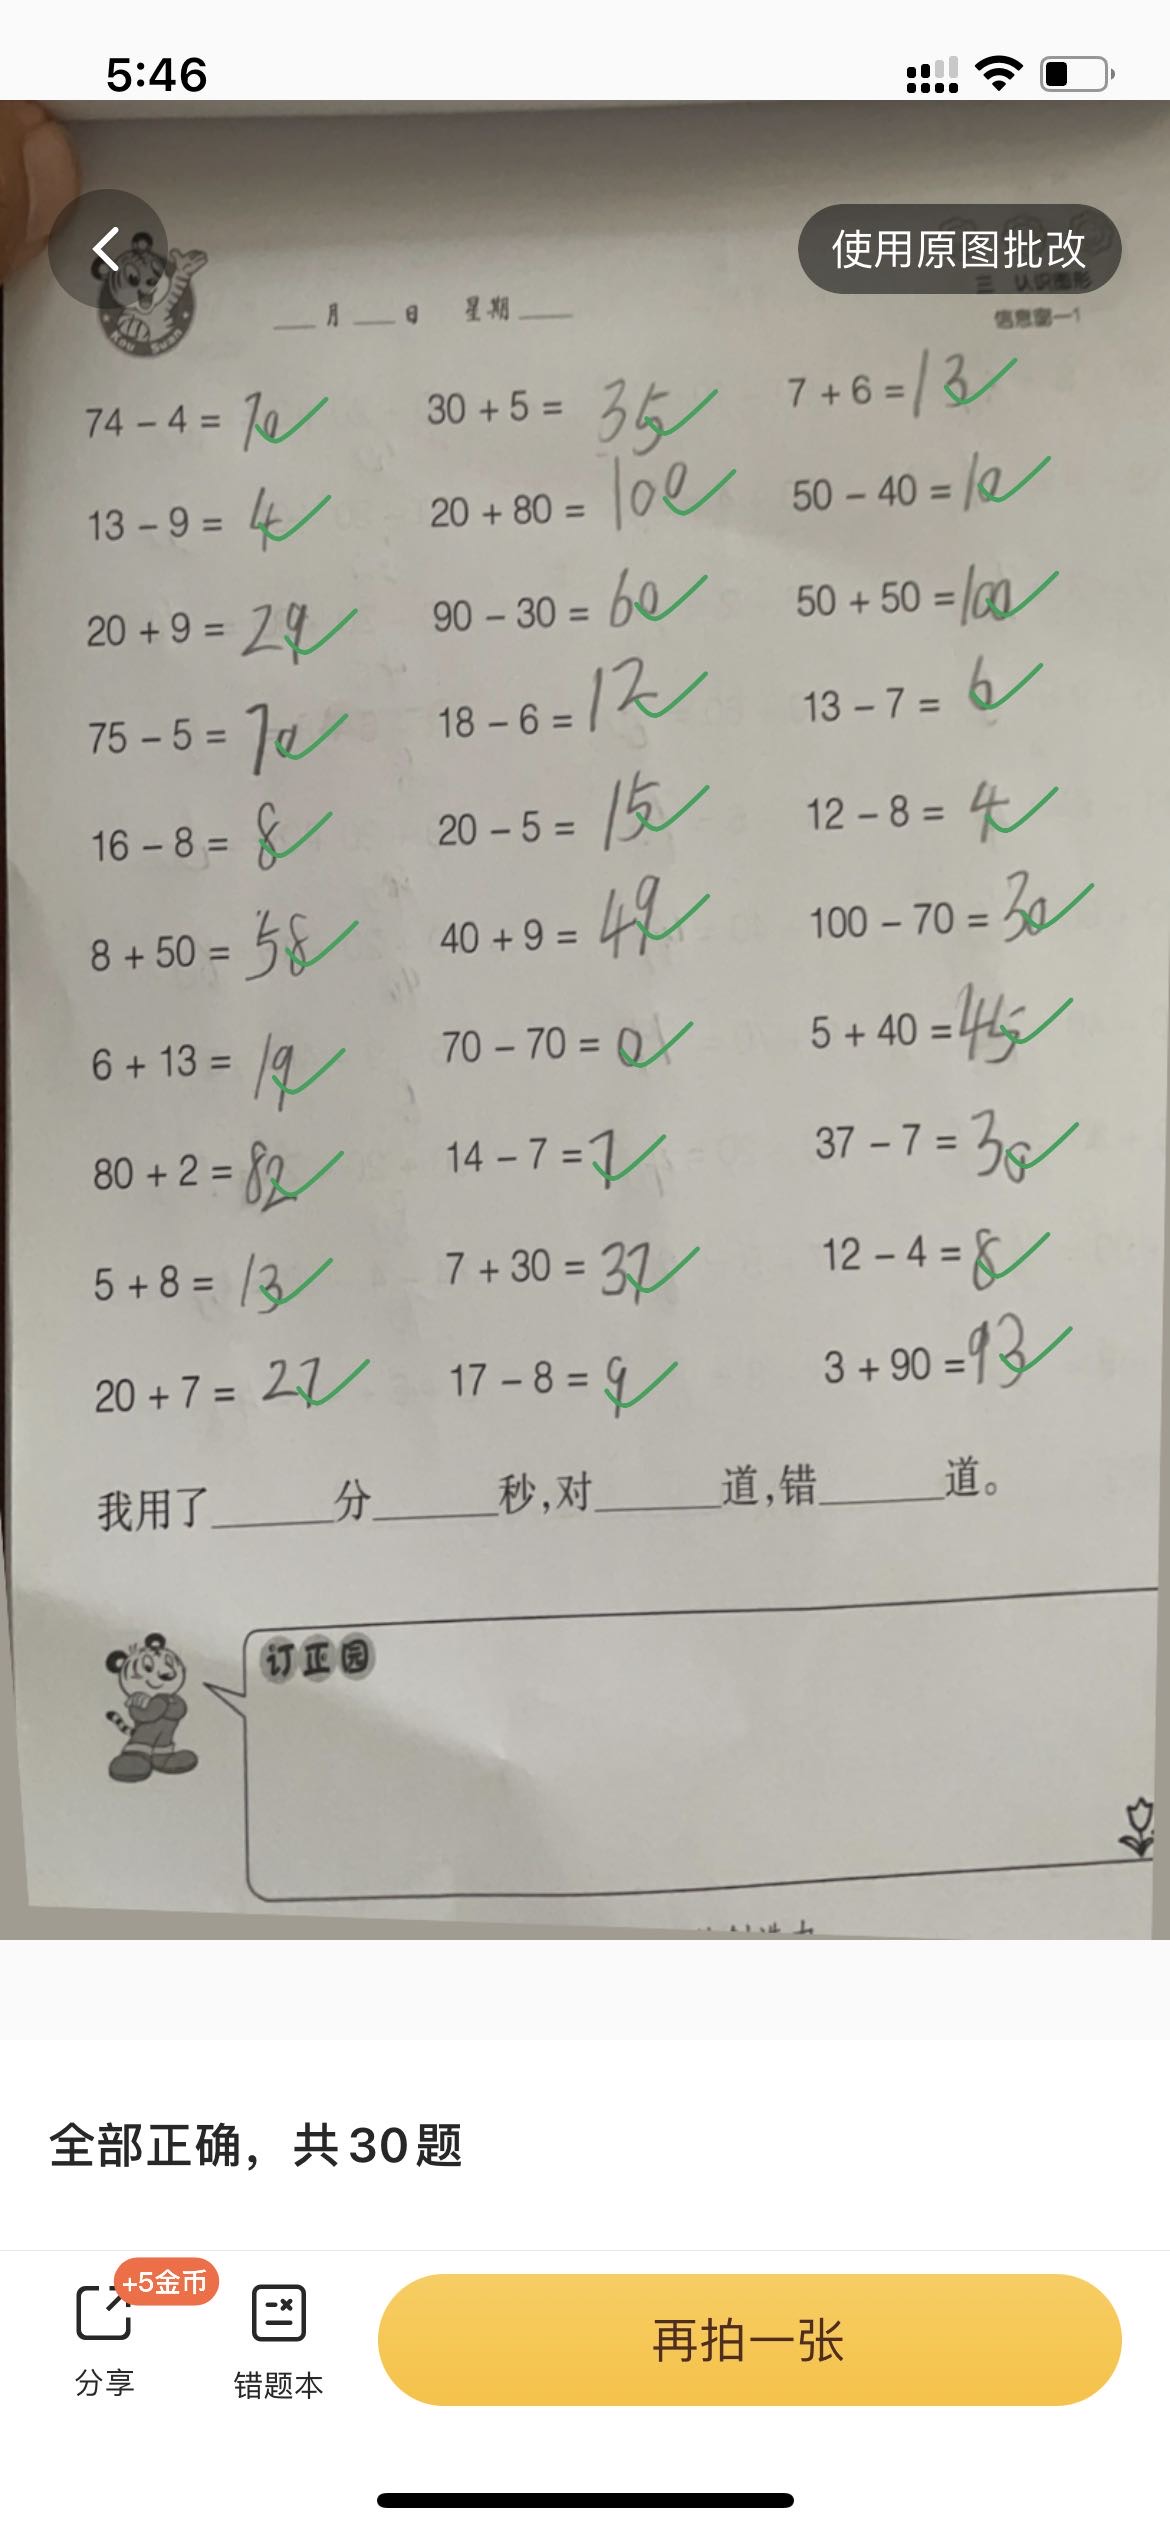 5:46
使用原图批改
三 认识图形
信息窗一1
___月___日 星期___
Kou Suan
74 − 4 = 70 30 + 5 = 35 7 + 6 = 13
13 − 9 = 4 20 + 80 = 100 50 − 40 = 10
20 + 9 = 29 90 − 30 = 60 50 + 50 = 100
75 − 5 = 70 18 − 6 = 12 13 − 7 = 6
16 − 8 = 8 20 − 5 = 15 12 − 8 = 4
8 + 50 = 58 40 + 9 = 49 100 − 70 = 30
6 + 13 = 19 70 − 70 = 0 5 + 40 = 45
80 + 2 = 82 14 − 7 = 7 37 − 7 = 30
5 + 8 = 13 7 + 30 = 37 12 − 4 = 8
20 + 7 = 27 17 − 8 = 9 3 + 90 = 93
我用了______分______秒,对______道,错______道。
订正园
全部正确，共30题
+5金币
分享
错题本
再拍一张